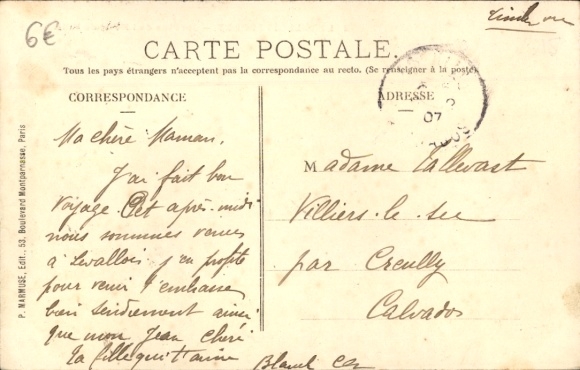 6€
CARTE POSTALE.
Tous les pays étrangers n'acceptent pas la correspondance au recto. (Se renseigner à la poste)
CORRESPONDANCE
ADRESSE
07
P. MARMUSE, Edit., 53, Boulevard Montparnasse, Paris
Ma chère Maman,
J'ai fait bon
voyage. Cet après-midi
nous sommes venus
à Levallois j'en profite
pour venir t'embrasser
bien tendrement ainsi
que mon Jean Chéri
Ta fille qui t'aime
Madame Tallevast
Villiers-le-sec
par Creully
Calvados